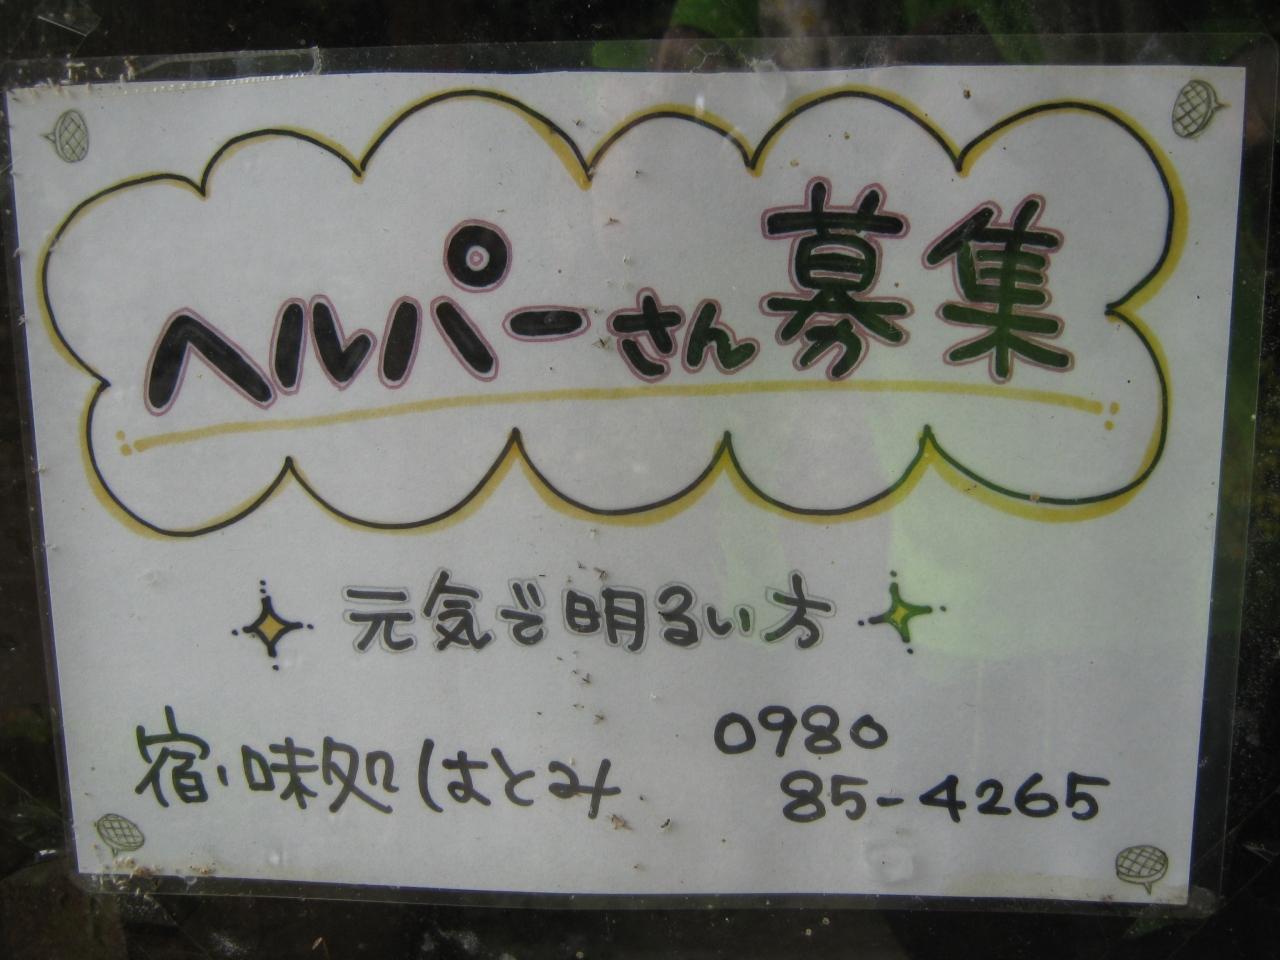 ヘルパーさん募集
元気で明るい方
宿・味処 はとみ
0980
85-4265